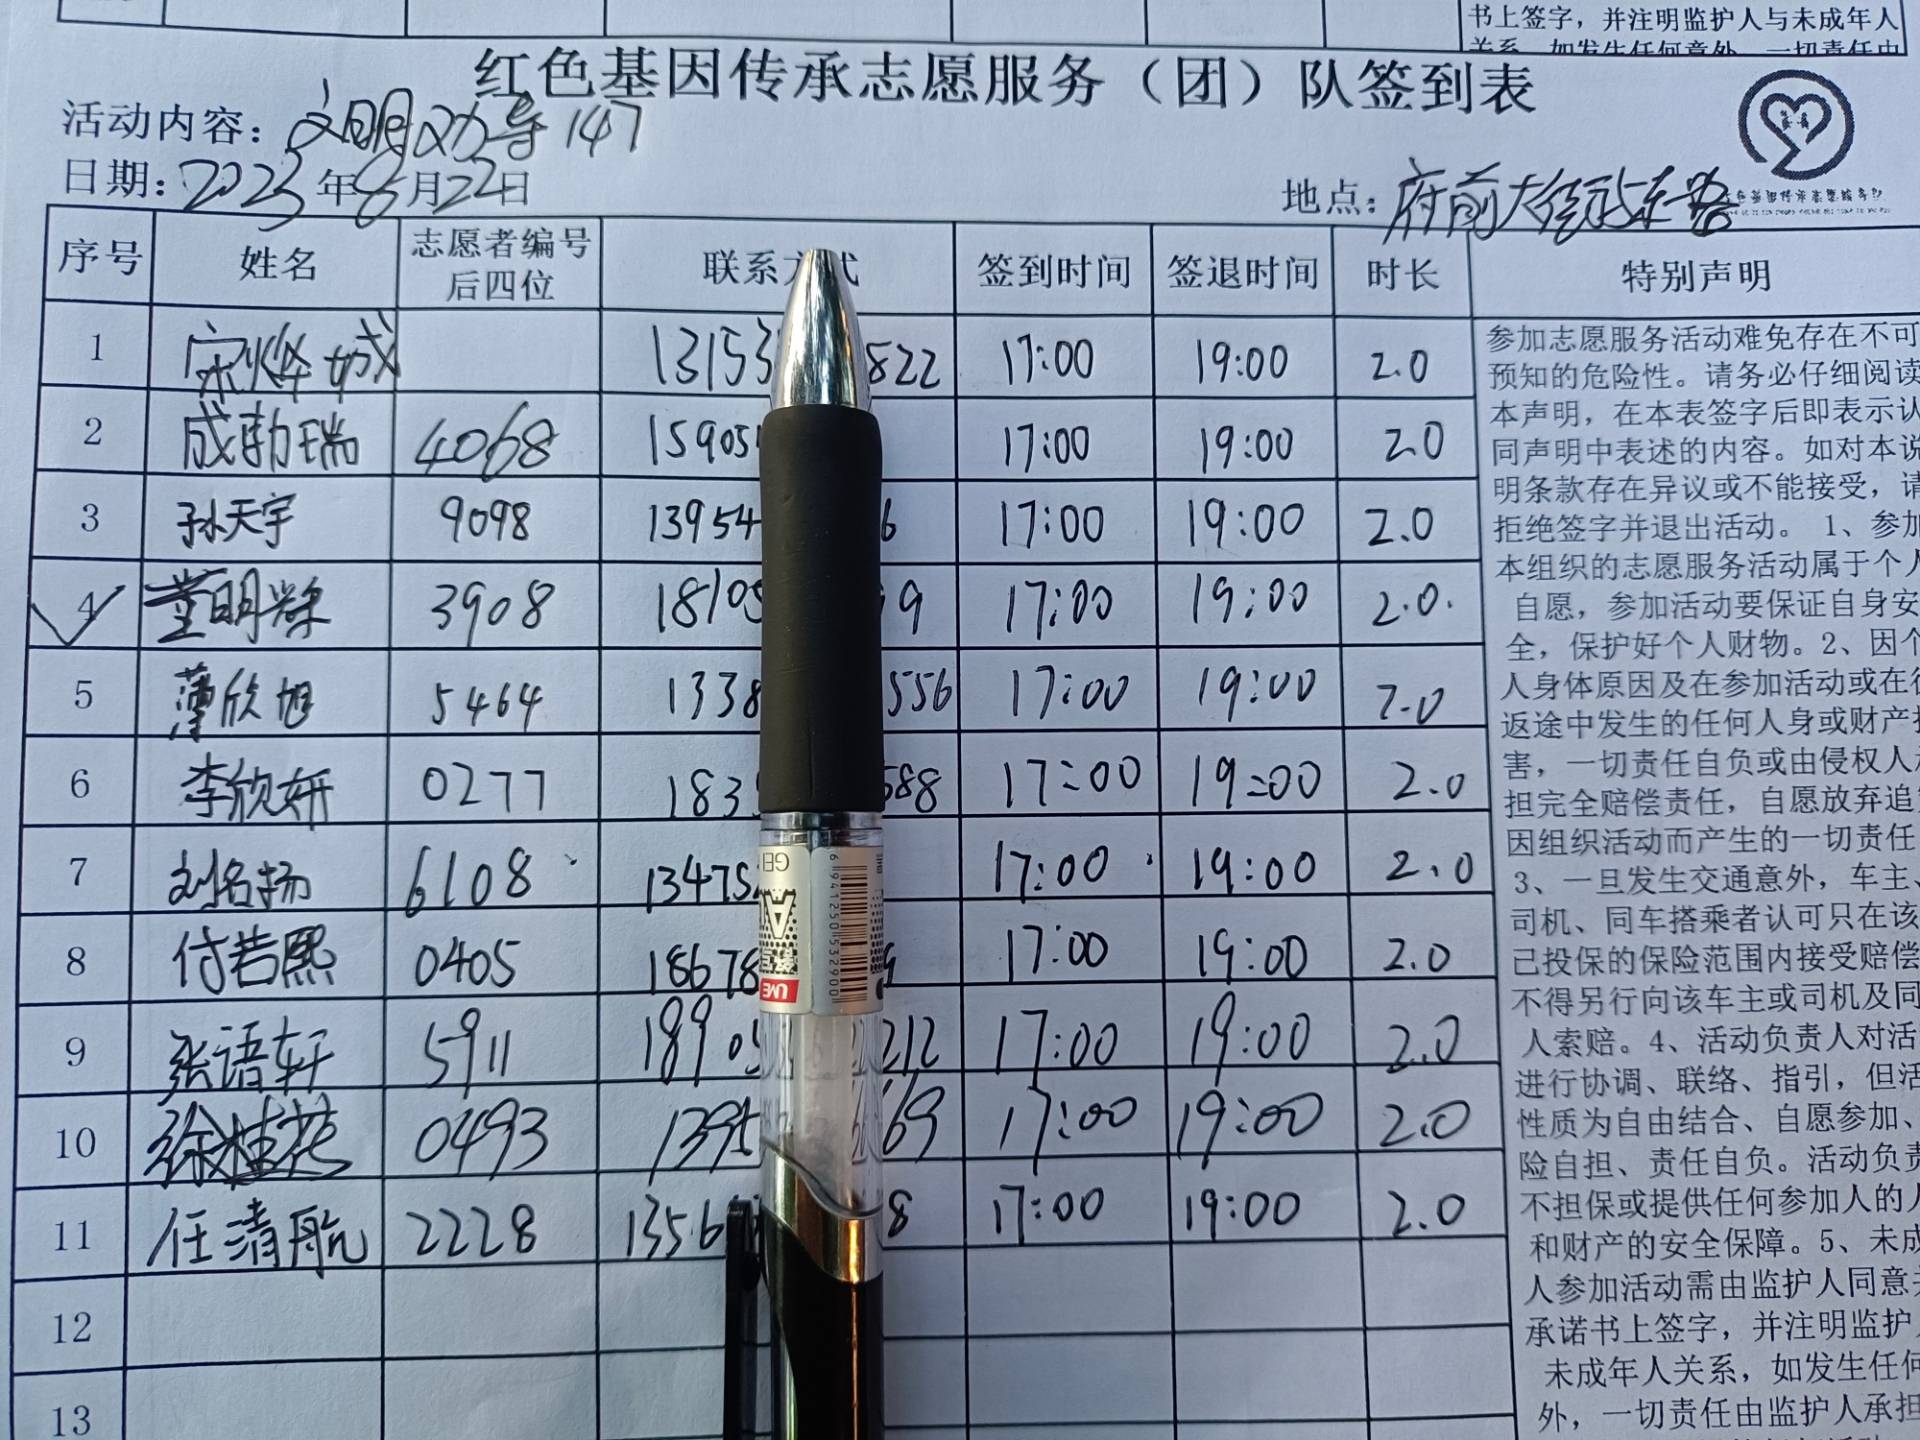 书上签字，并注明监护人与未成年人
红色基因传承志愿服务（团）队签到表
活动内容：文明劝导147
日期：2023年8月22日
地点：府前大街
序号 姓名 志愿者编号后四位 联系方式 签到时间 签退时间 时长 特别声明
1 13153 822 17:00 19:00 2.0
2 成勃瑞 4068 15905 17:00 19:00 2.0
3 孙天宇 9098 13954 6 17:00 19:00 2.0
4 董明 3908 18105 9 17:00 19:00 2.0.
5 薄欣旭 5464 1338 556 17:00 19:00 2.0
6 李欣妍 0277 183 588 17:00 19:00 2.0
7 刘名扬 6108 13475 17:00 19:00 2.0
8 付若熙 0405 18678 17:00 19:00 2.0
9 张语轩 5911 1890 212 17:00 19:00 2.0
10 徐桂花 0493 139 69 17:00 19:00 2.0
11 任清航 2228 1356 8 17:00 19:00 2.0
12
13
参加志愿服务活动难免存在不可
预知的危险性。请务必仔细阅读
本声明，在本表签字后即表示认
同声明中表述的内容。如对本说
明条款存在异议或不能接受，请
拒绝签字并退出活动。 1、参加
本组织的志愿服务活动属于个人
自愿，参加活动要保证自身安
全，保护好个人财物。2、因个
人身体原因及在参加活动或在往
返途中发生的任何人身或财产损
害，一切责任自负或由侵权人承
担完全赔偿责任，自愿放弃追究
因组织活动而产生的一切责任
3、一旦发生交通意外，车主、
司机、同车搭乘者认可只在该
己投保的保险范围内接受赔偿
不得另行向该车主或司机及同
人索赔。4、活动负责人对活
进行协调、联络、指引，但活
性质为自由结合、自愿参加、
险自担、责任自负。活动负责
不担保或提供任何参加人的人
和财产的安全保障。5、未成
人参加活动需由监护人同意并
承诺书上签字，并注明监护人
未成年人关系，如发生任何
外，一切责任由监护人承担
6 941250 532900